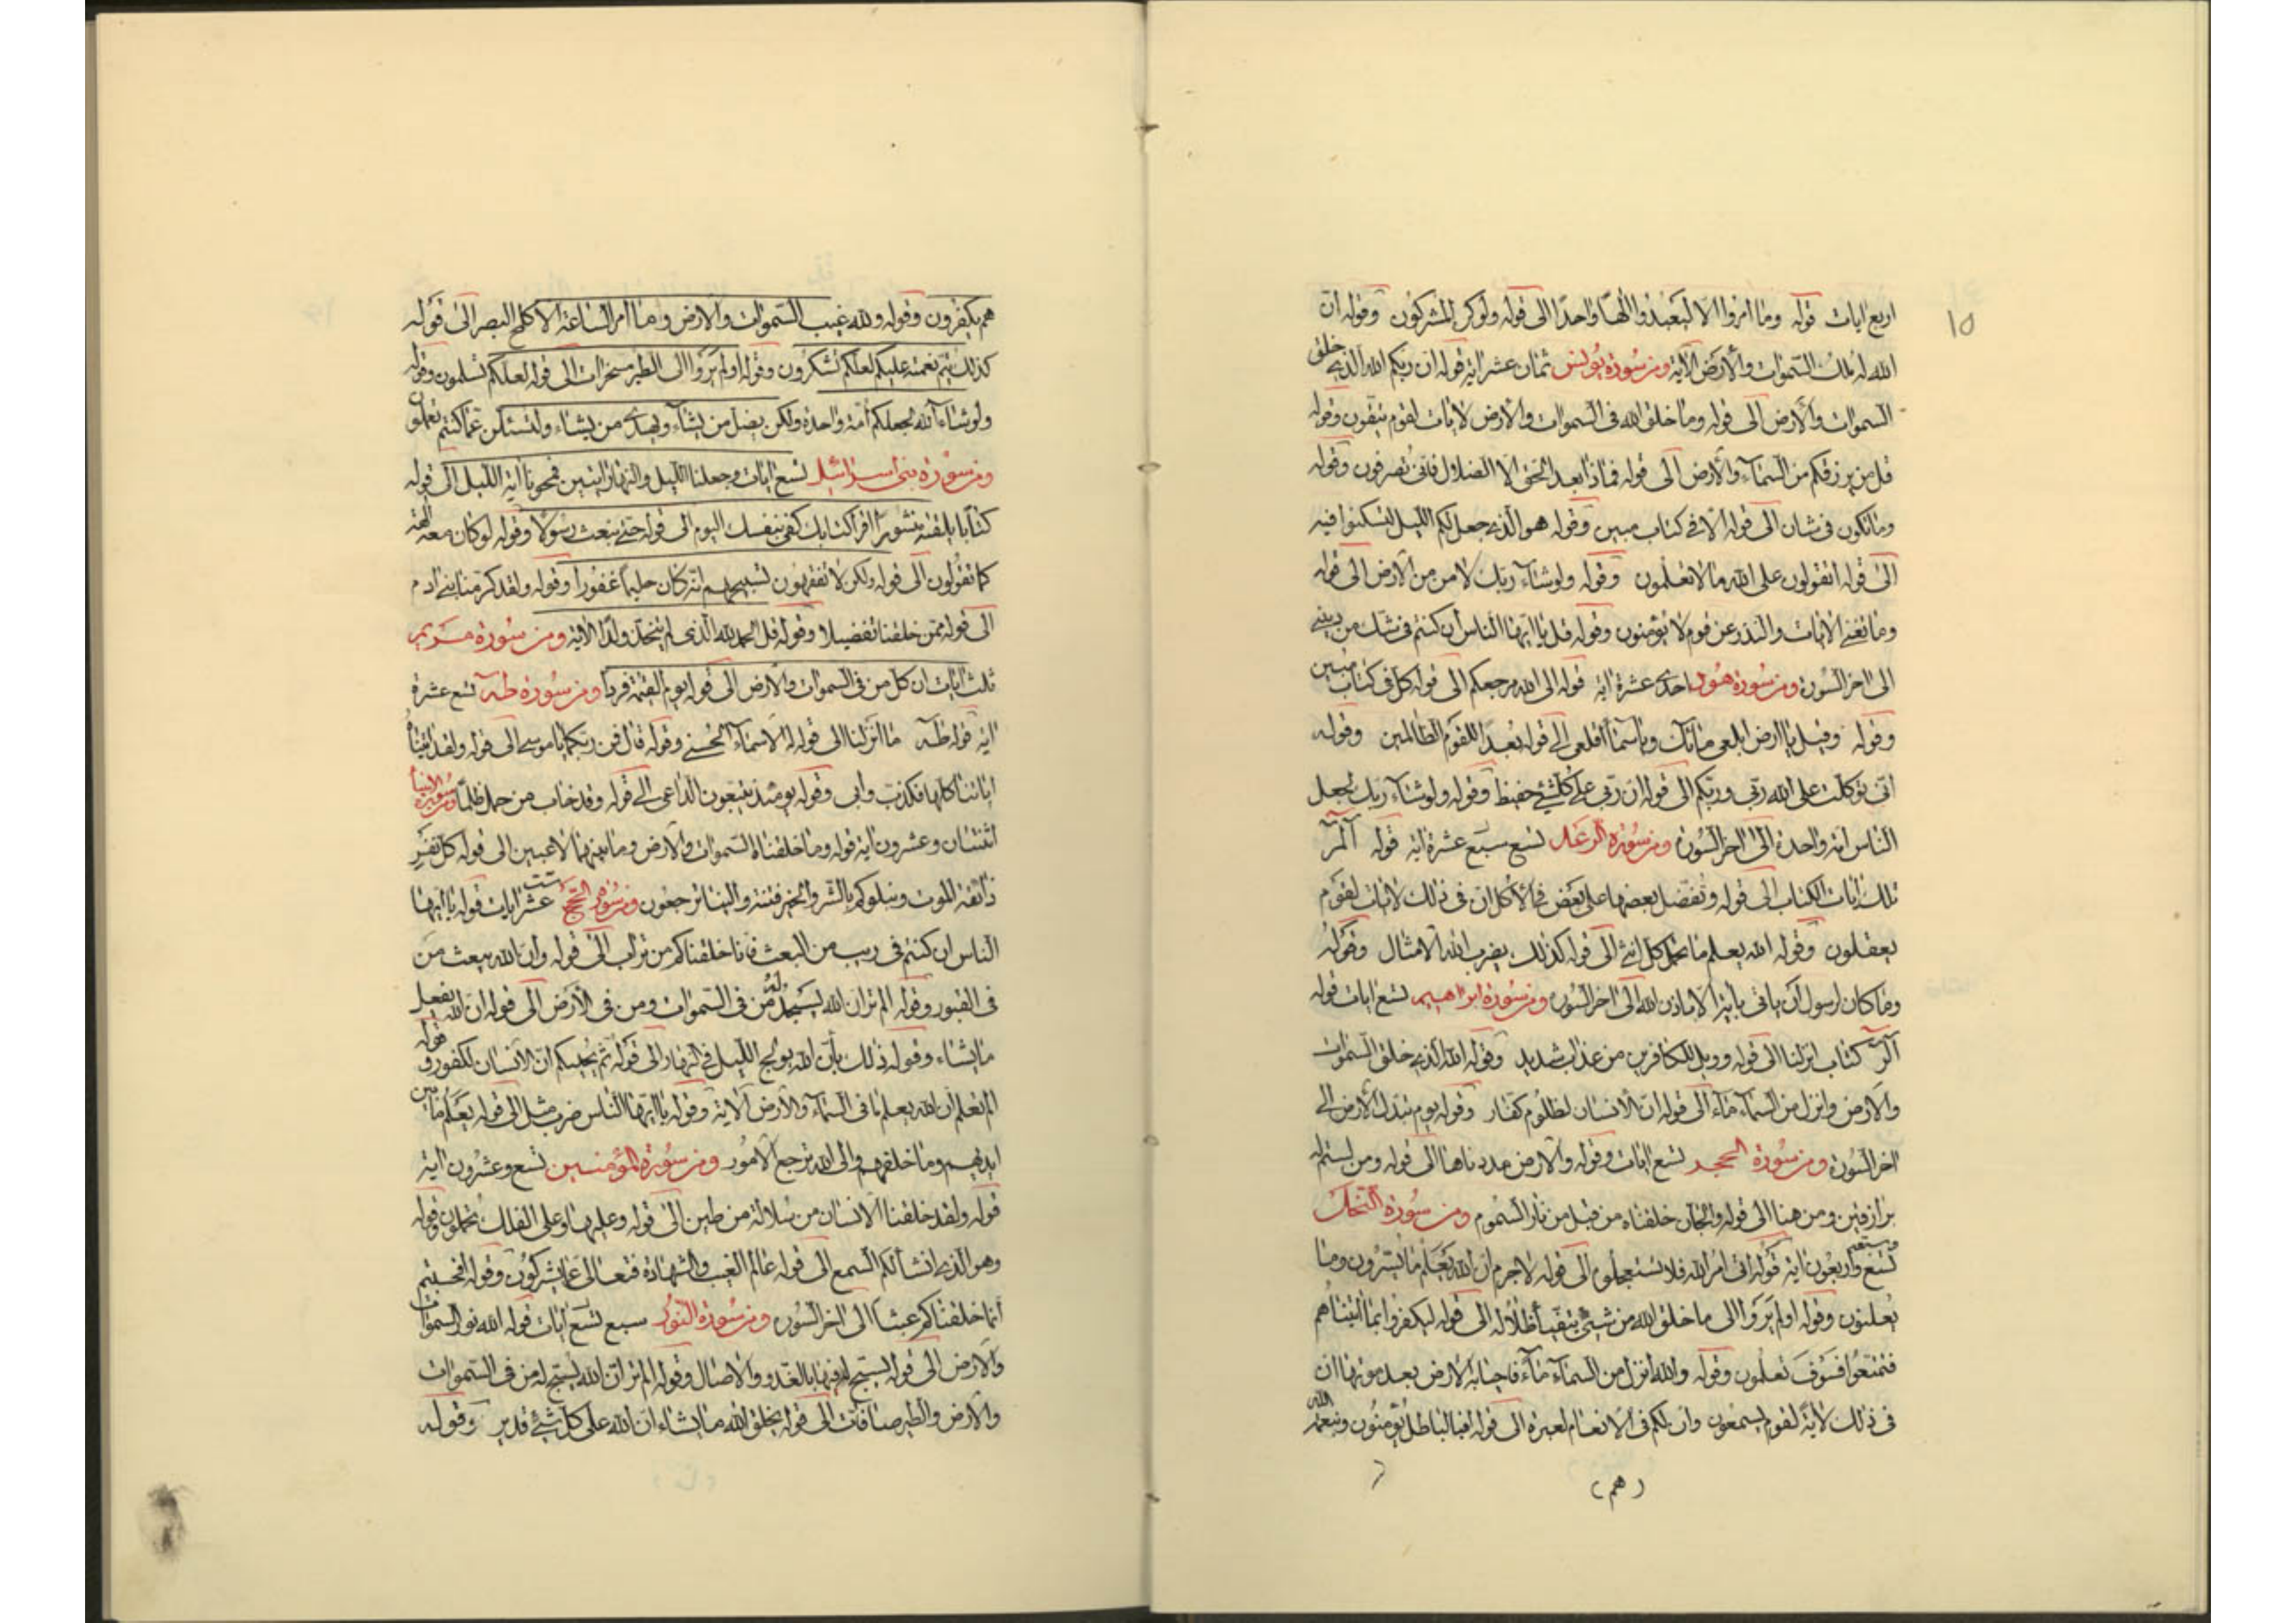 ١٥
اربع ايات قوله وما امروا الا ليعبدوا الها واحدا الى قوله ولو كره المشركون وقوله ان
الله له ملك السموات والارض الاية ومن سورة يونس ثمان عشر اية قوله ان ربكم الله الذي خلق
السموات والارض الى قوله وما خلق الله فى السموات والارض لايات لقوم يتقون وقوله
قل من يرزقكم من السماء والارض الى قوله فماذا بعد الحق الا الضلال فانى تصرفون وقوله
وما تكون فى شان الى قوله الا فى كتاب مبين وقوله هو الذي جعل لكم الليل لتسكنوا فيه
الى قوله اتقولون على الله ما لا تعلمون وقوله ولو شاء ربك لامن من الارض الى قوله
وما تغنى الايات والنذر عن قوم لا يؤمنون وقوله قل يا ايها الناس ان كنتم فى شك من دينى
الى اخر السورة ومن سورة هود احدى عشرة اية قوله الى الله مرجعكم الى قوله كل فى كتاب مبين
وقوله وقيل يا ارض ابلعى مائك ويا سماء اقلعى الى قوله بعدا للقوم الظالمين وقوله
انى توكلت على الله ربى وربكم الى قوله ان ربى على كل شئ حفيظ وقوله ولو شاء ربك لجعل
الناس امة واحدة الى اخر السورة ومن سورة الرعد تسع سبع عشرة اية قوله المر
تلك ايات الكتاب الى قوله ونفضل بعضها على بعض فى الاكل ان فى ذلك لايات لقوم
يعقلون وقوله الله يعلم ما تحمل كل انثى الى قوله كذلك يضرب الله الامثال وقوله
وما كان لرسول ان ياتى باية الا باذن الله الى اخر السورة ومن سورة ابراهيم تسع ايات قوله
الر كتاب انزلنا الى قوله وويل للكافرين من عذاب شديد وقوله الله الذي خلق السموات
والارض وانزل من السماء ماء الى قوله ان الانسان لظلوم كفار وقوله يوم تبدل الارض الى
اخر السورة ومن سورة الحجر تسع ايات وقوله والارض مددناها الى قوله ومن لستم له
برازقين ومن هنا الى قوله والجان خلقناه من قبل من نار السموم ومن سورة النحل
تسع واربعون اية قوله اتى امر الله فلا تستعجلوه الى قوله لا جرم ان الله يعلم ما يسرون وما
يعلنون وقوله اولم يروا الى ما خلق الله من شئ يتفيأ ظلاله الى قوله ليكفروا بما اتيناهم
فتمتعوا فسوف تعلمون وقوله والله انزل من السماء ماء فاحيا به الارض بعد موتها ان
فى ذلك لاية لقوم يسمعون وان لكم فى الانعام لعبرة الى قوله افبالباطل يؤمنون وبنعمة الله
(هم)
هم يكفرون وقوله ولله غيب السموات والارض وما امر الساعة الا كلمح البصر الى قوله
كذلك يتم نعمته عليكم لعلكم تشكرون وقوله اولم يروا الى الطير مسخرات الى قوله لعلكم تسلمون وقوله
ولو شاء الله لجعلكم امة واحدة ولكن يضل من يشاء ويهدي من يشاء ولتسئلن عما كنتم تعملون
ومن سورة بنى اسرائيل تسع ايات وجعلنا الليل والنهار ايتين فمحونا اية الليل الى قوله
كتابا يلقيه منشورا اقرا كتابك كفى بنفسك اليوم الى قوله حتى نبعث رسولا وقوله لو كان معه الهة
كما تقولون الى قوله ولكن لا تفقهون تسبيحهم انه كان حليما غفورا وقوله ولقد كرمنا بنى ادم
الى قوله ممن خلقنا تفضيلا وقوله قل الحمد لله الذى لم يتخذ ولدا الاية ومن سورة مريم
ثلث ايات ان كل من فى السموات والارض الى قوله يوم القيمة فردا ومن سورة طه تسع عشرة
اية قوله طه ما انزلنا الى قوله له الاسماء الحسنى وقوله قال فمن ربكما يا موسى الى قوله ولقد اريناه
اياتنا كلها فكذب وابى وقوله يومئذ يتبعون الداعى الى قوله وقد خاب من حمل ظلما ومن سورة الانبياء
اثنتان وعشرون اية قوله وما خلقنا السموات والارض وما بينهما لاعبين الى قوله كل نفس
ذائقة الموت ونبلوكم بالشر والخير فتنة والينا ترجعون ومن سورة الحج ست عشر ايات قوله يا ايها
الناس ان كنتم فى ريب من البعث فانا خلقناكم من تراب الى قوله وان الله يبعث من
فى القبور وقوله الم تر ان الله يسجد له من فى السموات ومن فى الارض الى قوله ان الله يفعل
ما يشاء وقوله ذلك بأن الله يولج الليل فى النهار الى قوله ثم يحييكم ان الانسان لكفور وقوله
الم تعلم ان الله يعلم ما فى السماء والارض الاية وقوله يا ايها الناس ضرب مثل الى قوله يعلم ما بين
ايديهم وما خلفهم والى الله ترجع الامور ومن سورة المؤمنين تسع وعشرون اية
قوله ولقد خلقنا الانسان من سلالة من طين الى قوله وعليها وعلى الفلك تحملون وقوله
وهو الذي انشأ لكم السمع الى قوله عالم الغيب والشهادة فتعالى عما يشركون وقوله افحسبتم
انما خلقناكم عبثا الى اخر السورة ومن سورة النور سبع تسع ايات قوله الله نور السموات
والارض الى قوله يسبح له فيها بالغدو والاصال وقوله الم تر ان الله يسبح له من فى السموات
والارض والطير صافات الى قوله يخلق الله ما يشاء ان الله على كل شئ قدير وقوله